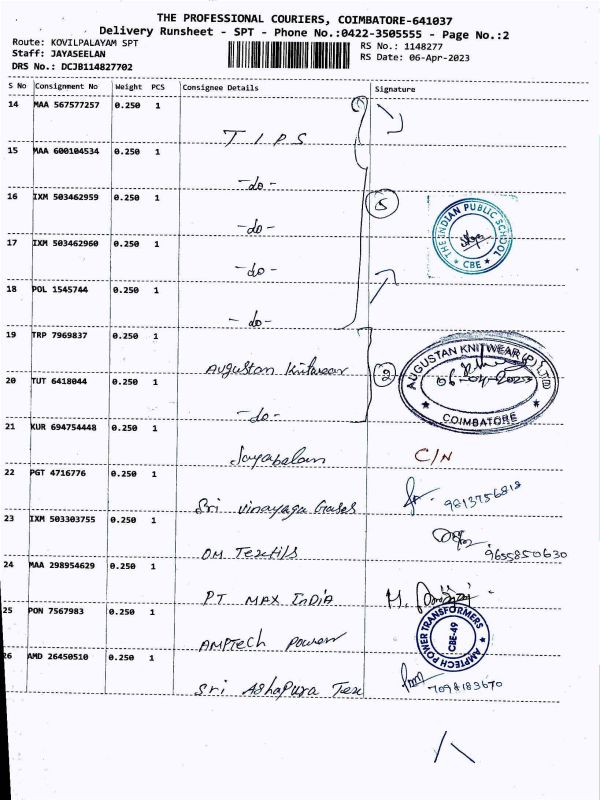 THE PROFESSIONAL COURIERS, COIMBATORE-641037
Delivery Runsheet - SPT - Phone No.:0422-3505555 - Page No.:2
Route: KOVILPALAYAM SPT
RS No.: 1148277
Staff: JAYASEELAN
RS Date: 06-Apr-2023
DRS No.: DCJB114827702
S No Consignment No Weight PCS Consignee Details Signature
14 MAA 567577257 0.250 1
T I P S
15 MAA 600104534 0.250 1
-do-
16 IXM 503462959 0.250 1
5
THE INDIAN PUBLIC SCHOOL
CBE
-do-
17 IXM 503462960 0.250 1
-do-
18 POL 1545744 0.250 1
-do-
19 TRP 7969837 0.250 1
Augustan Knitwear
2
AUGUSTAN KNITWEAR (P) LTD
COIMBATORE
20 TUT 6418044 0.250 1
-do-
21 KUR 694754448 0.250 1
Jayabalan C/N
22 PGT 4716776 0.250 1
Sri Vinayaga Gases
23 IXM 503303755 0.250 1
OM Textils 9655850630
24 MAA 298954629 0.250 1
PT MAX INDIA
25 PON 7567983 0.250 1
AMPTech Power
AMPTECH POWER TRANSFORMERS
CBE-49
26 AMD 26450510 0.250 1
Sri Ashapura Tex 7098183670